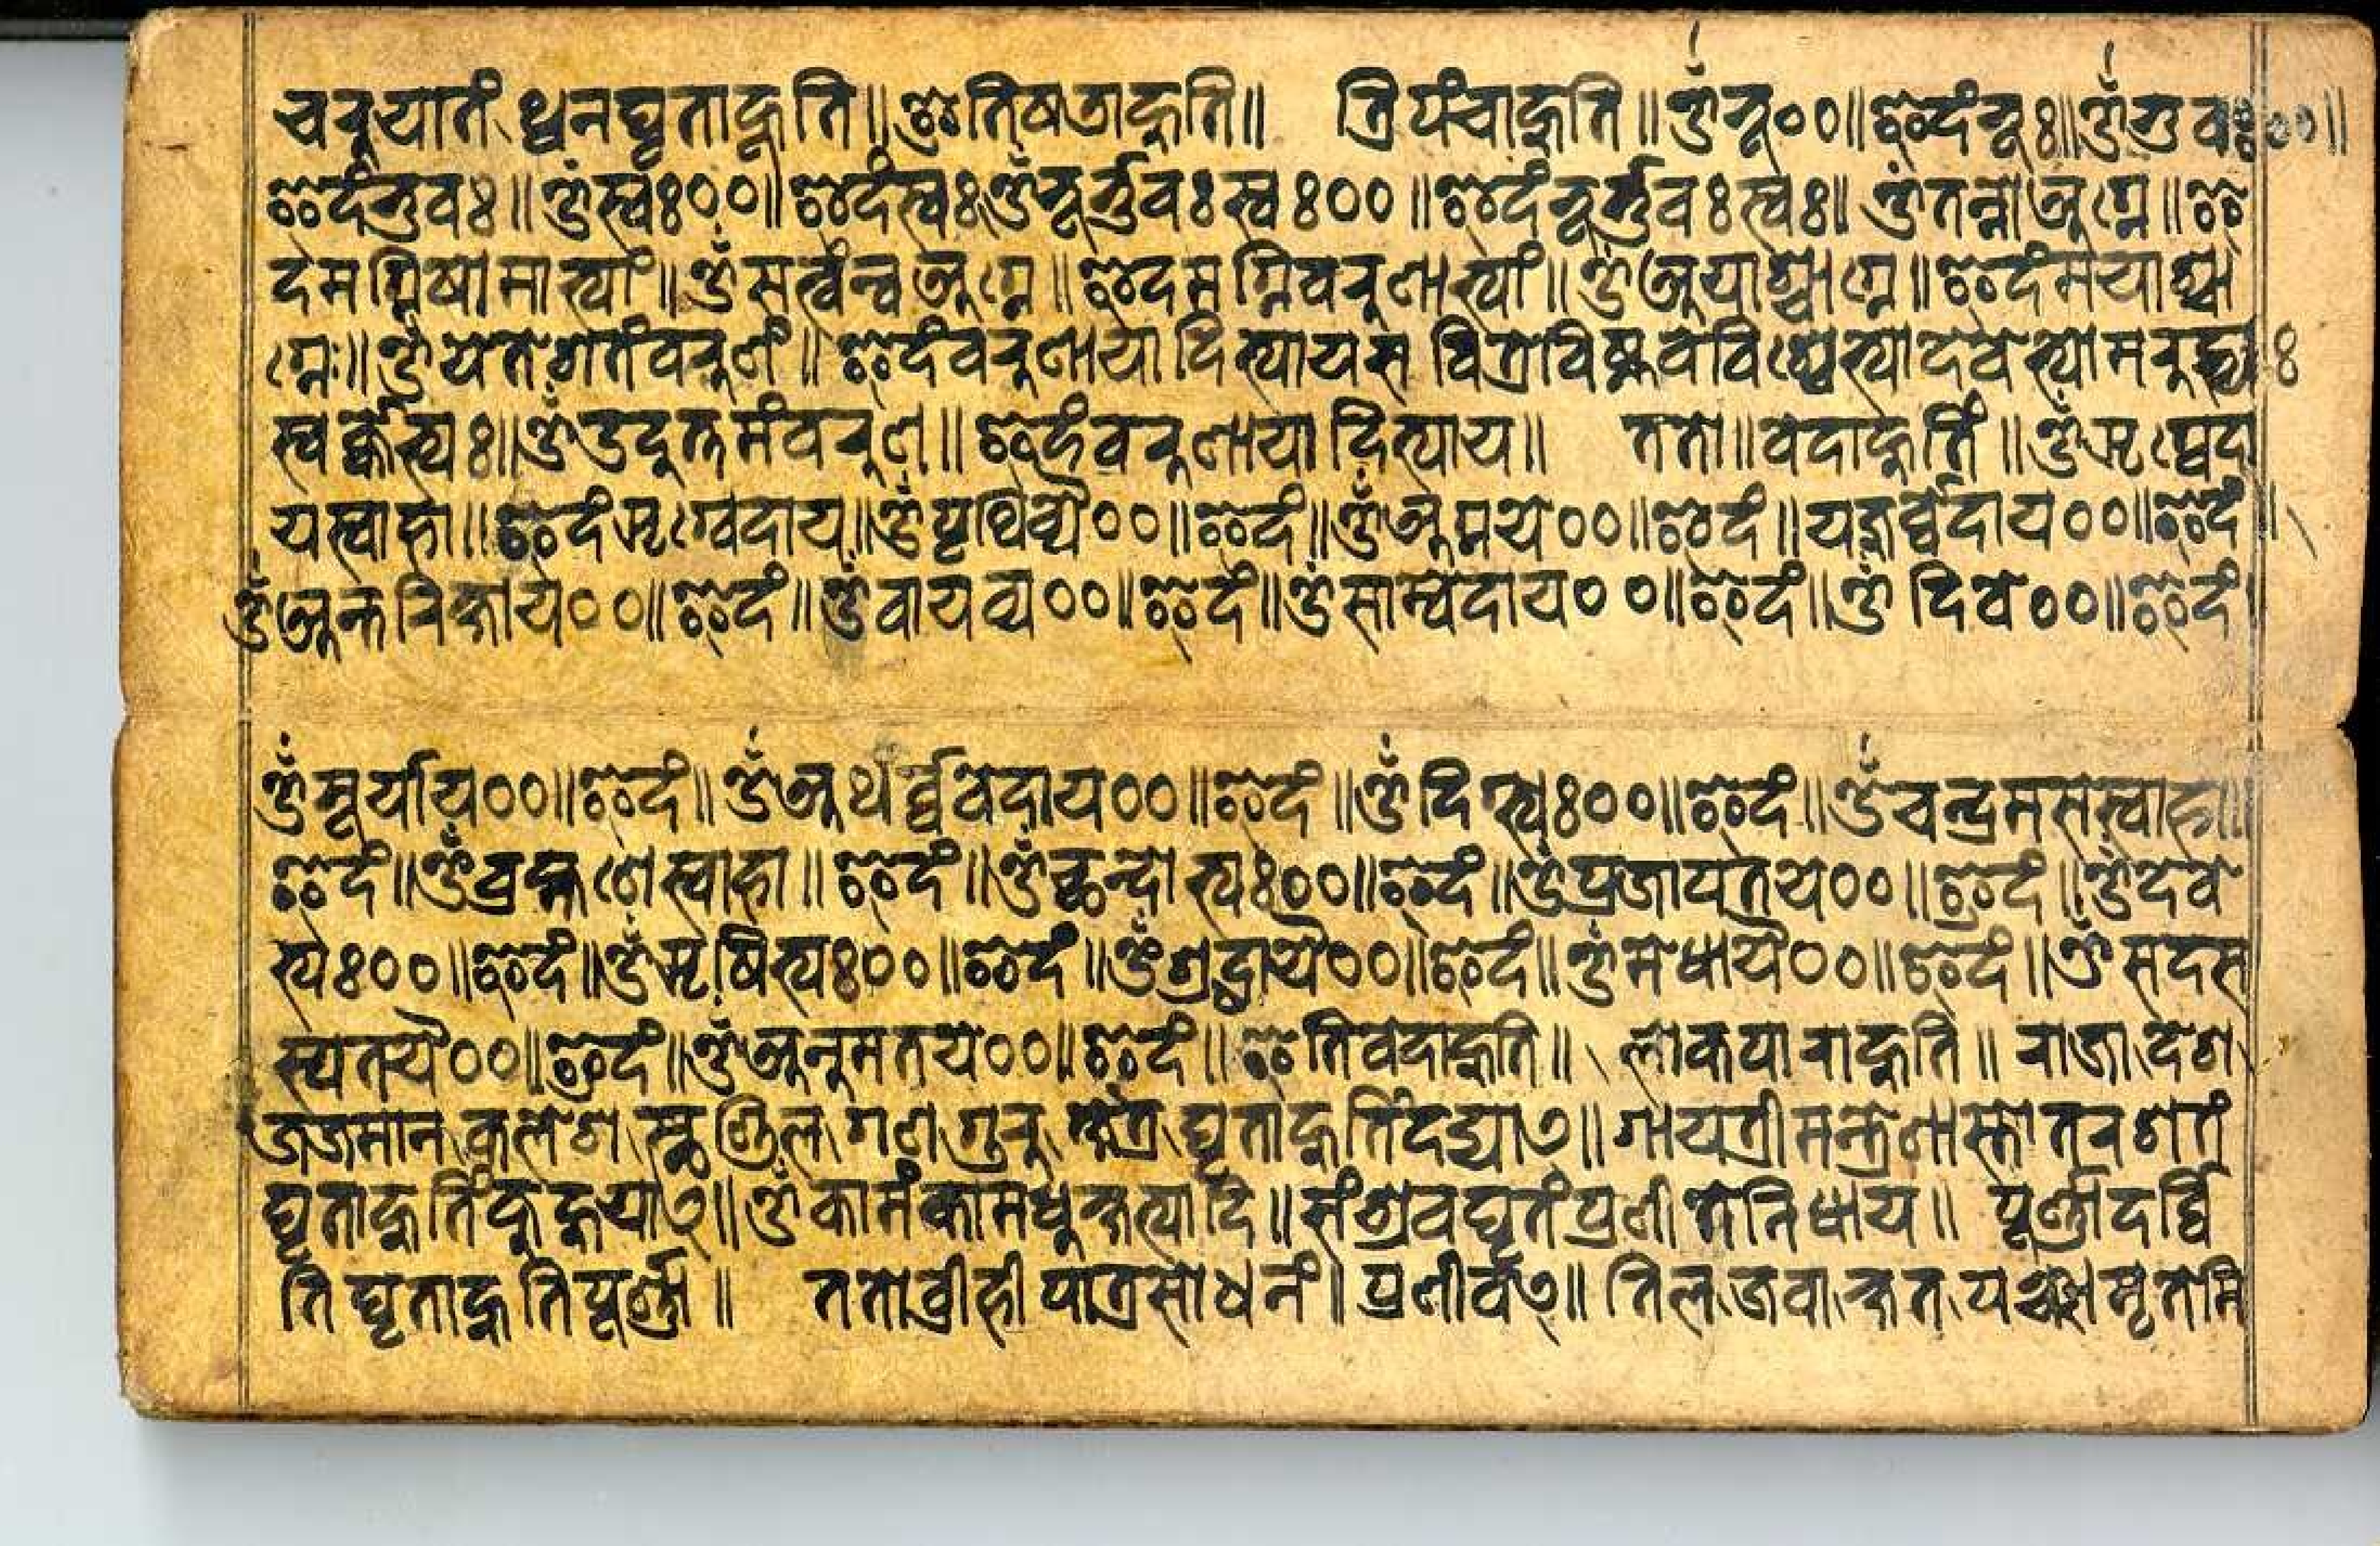 चरुयातं थ्वनघृताहुति॥ इतिषताहुति॥ त्रिपंचाहुति॥ ॐ भू००॥ इदं भूः॥ ॐ भुवः००॥
इदं भुवः॥ ॐ स्वः००॥ इदं स्वः ॐ भूर्भुवः स्वः००॥ इदं भूर्भुवः स्वः॥ ॐ तन्नो अग्ने॥ इ
दमग्निषोमाभ्यां॥ ॐ सत्वंन्व अग्ने॥ इदमग्निवरुणाभ्यां॥ ॐ अयाश्चाग्ने॥ इदंमयाश्चा
ग्नेः॥ ॐ येतेशतंवरुणं॥ इदंवरुणायादित्यायस वित्रेविष्णवेविश्वेभ्यो देवेभ्यो मरुद्भ्यः
स्वर्क्केभ्यः॥ ॐ उदुत्तमंवरुण॥ इदंवरुणायादित्याय॥ ततो॥ वेदाहुतिं॥ ॐ ऋग्वेदा
यस्वाहा॥ इदं ऋग्वेदाय॥ ॐ पृथिव्यै००॥ इदं॥ ॐ अग्नये००॥ इदं॥ यजुर्व्वेदाय००॥ इदं॥
ॐ अन्तरिक्षाय००॥ इदं॥ ॐ वायव्य००॥ इदं॥ ॐ साम्वेदाय००॥ इदं॥ ॐ दिवे००॥ इदं
ॐ सूर्याय००॥ इदं॥ ॐ अथर्व्ववेदाय००॥ इदं॥ ॐ दिग्भ्यः००॥ इदं॥ ॐ चन्द्रमसेस्वाहा॥
इदं॥ ॐ ब्रह्मणेस्वाहा॥ इदं॥ ॐ छन्दोभ्यः००॥ इदं॥ ॐ प्रजापतये००॥ इदं॥ ॐ देवे
भ्यः००॥ इदं॥ ॐ ऋषिभ्यः००॥ इदं॥ ॐ श्रद्धायै००॥ इदं॥ ॐ मेधायै००॥ इदं॥ ॐ सदस
स्पतयै००॥ इदं॥ ॐ अनुमतये००॥ इदं॥ इतिवेदाहुति॥ लोकपाराहुति॥ राजा देश
जजमान कलेश स्थण्डिल गण गुरु क्षेत्र घृताहुतिंदद्यात्॥ गायत्रीमन्त्रेणास्तोतरशतं
घृताहुतिंकुहुयात्॥ ॐ कामंकामधुक्षेत्यादि॥ संश्रवघृतंप्रणीतेनिधाय॥ पूर्णादर्व्वि
ति घृताहुतिपूर्ण्णा॥ ततोव्रीहीपात्रसोधनं॥ प्रणीवत्॥ तिल जवाक्षत पञ्चामृतेमि